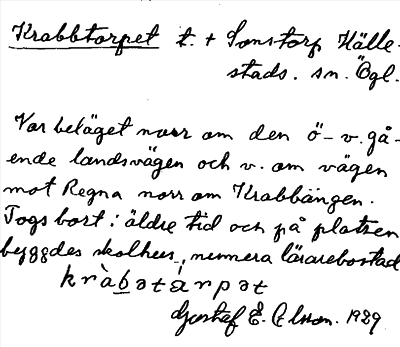 Krabbtorpet t. + Sonstorp Hälle-
stads. sn. Ögl.
Var beläget norr om den ö-v. gå-
ende landsvägen och v. om vägen
mot Regna norr om Krabbängen.
Togs bort i äldre tid och på platsen
byggdes skolhus, numera lärarebostad
kràbətárpət
Gustaf E. Olsson. 1929